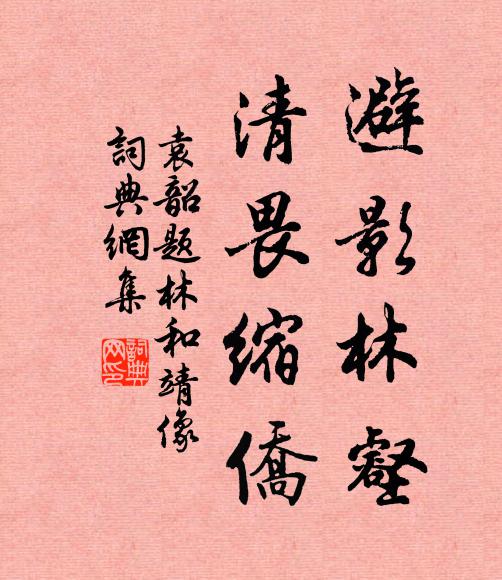 避影林壑
清畏縮僑
袁韶題林和靖像
詞典網集
詞典网印